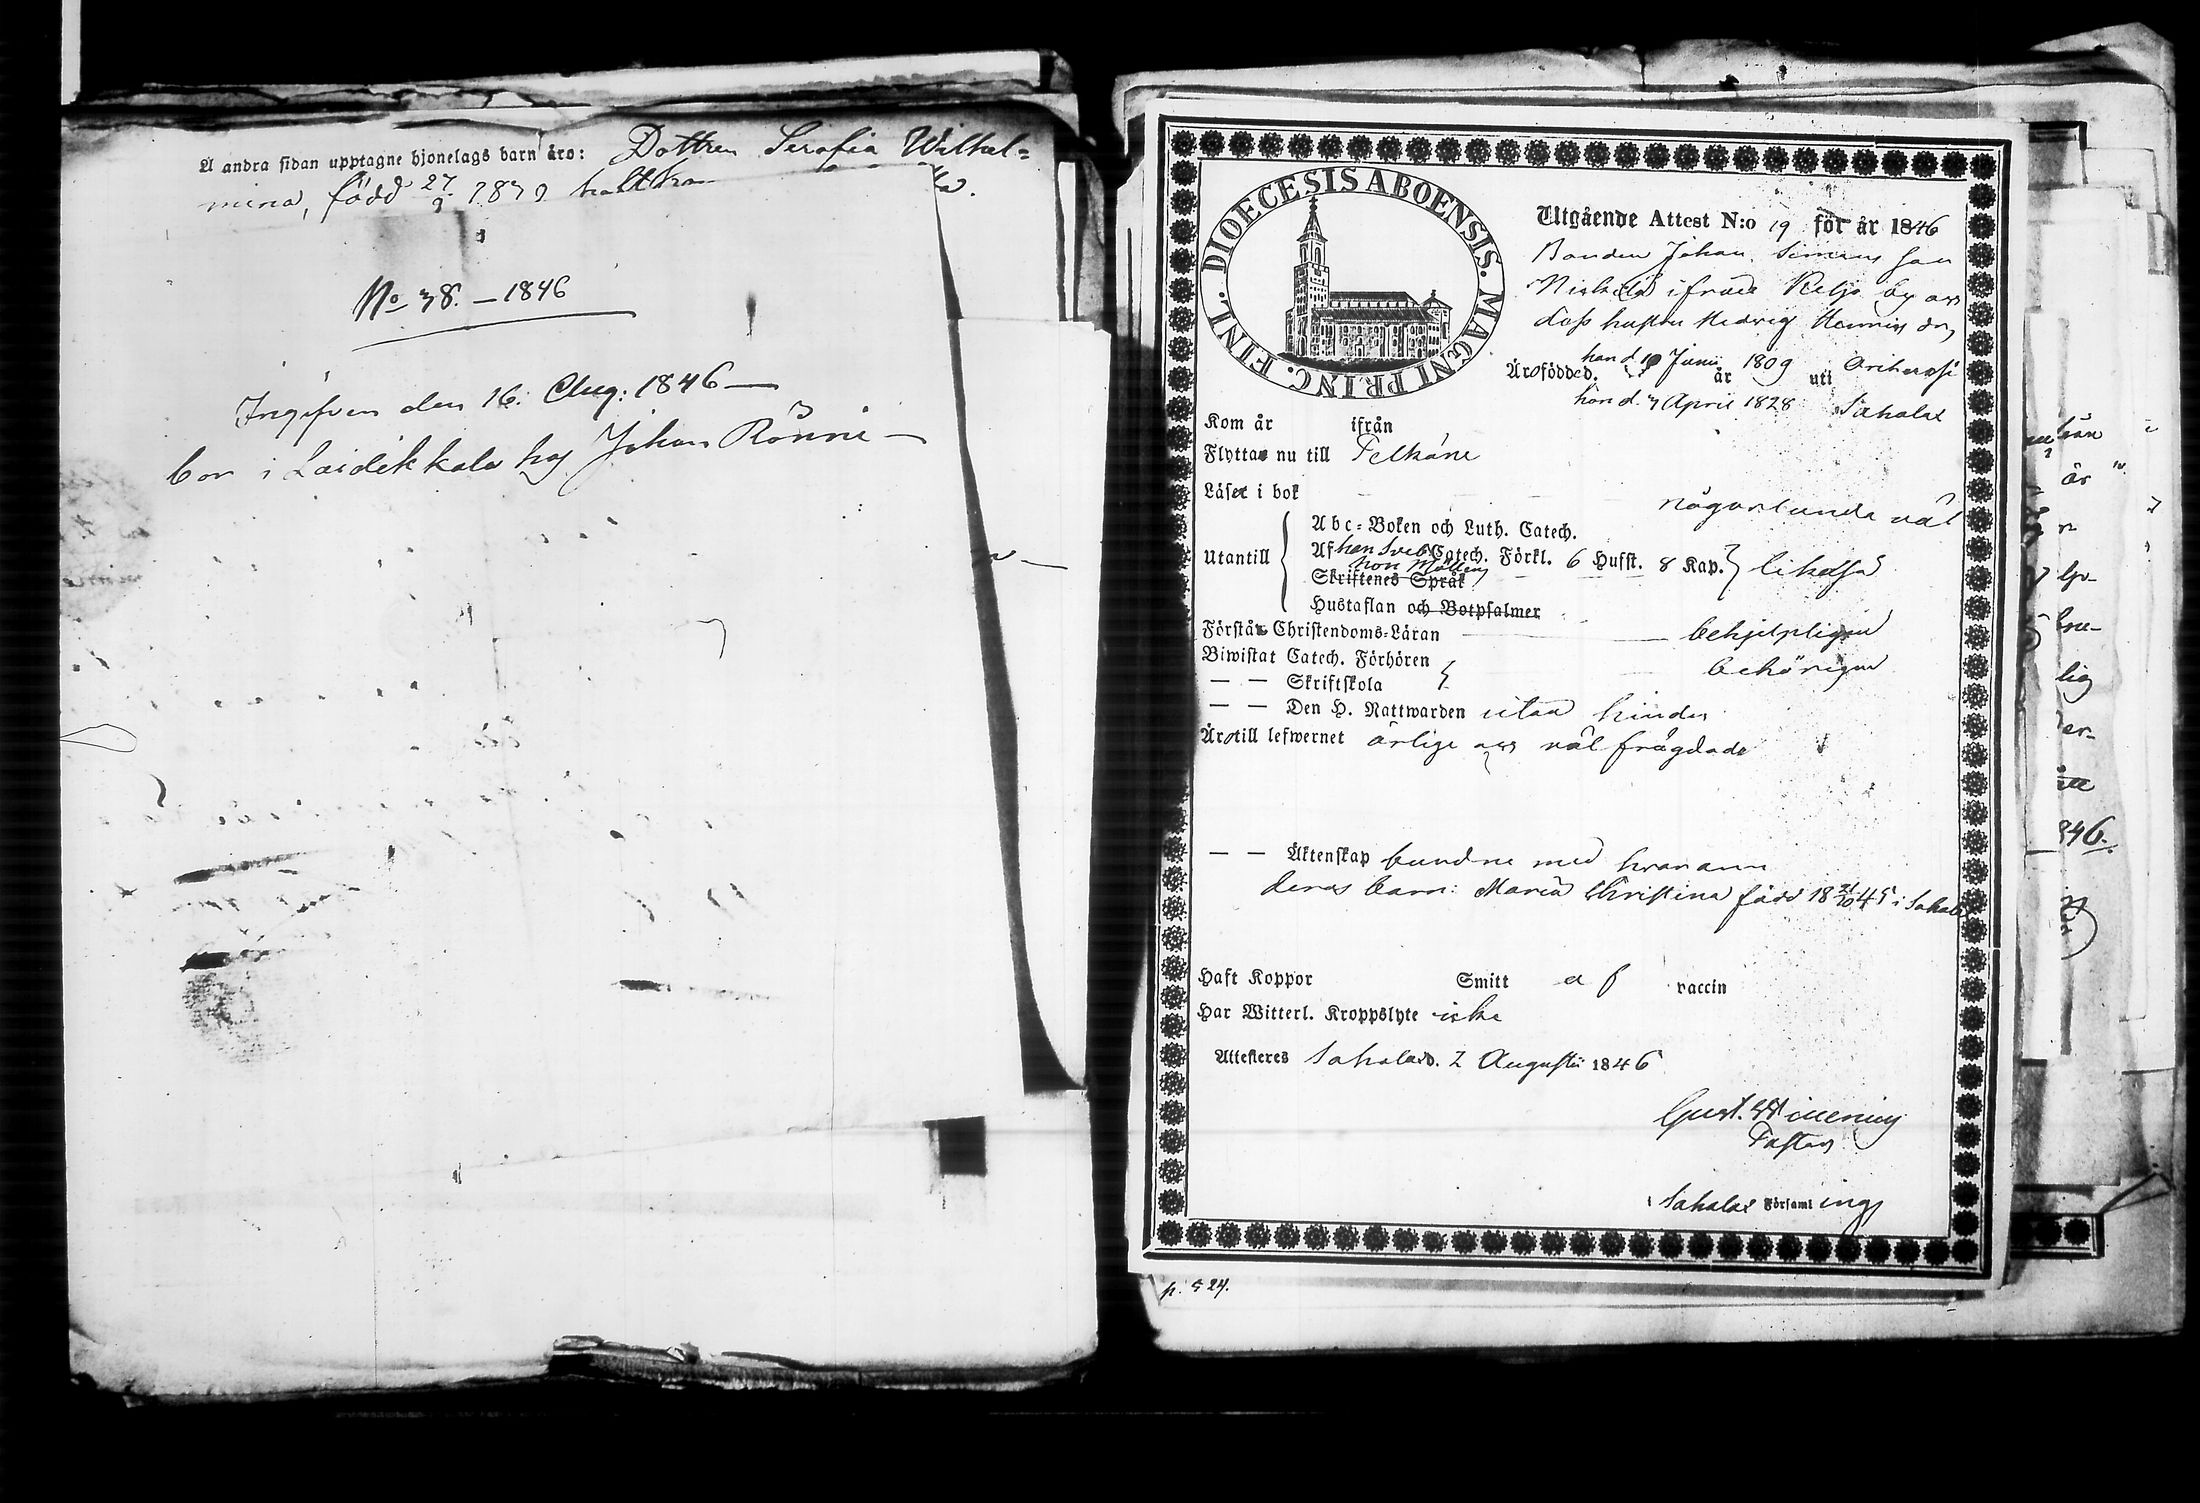 Å andra sidan upptagne hjonelags barn äro: Dottren Serafia Wilhel=
mina, född 27/9 1839 haft kop
No 38. – 1846
Ingifven den 16. Aug: 1846 —
bor i Laidikkala hos Johan Rönni —
DIOECESIS ABOENSIS. MAGNI PRINC. FINL.
Utgående Attest N:o 19 för år 1846
Bonden Johan Simons Son
ifrån by och
dess hustru Hedvig Henrics dr,
han d. 10 Juni 1809
Äro födde d. år uti Orihvesi
hon d. 7 April 1828 Sahalax
Kom år ifrån
Flytta nu till Pelkäne
Läser i bok någorlunda väl
Abc-Boken och Luth. Catech.
Utantill Af han Sveb. Catech. Förkl. 6 Hufst. 8 Kap. likaså
hon Möllers
Skriftenes Språk
Hustaflan och Botpsalmer
Förstå Christendoms-Läran behjelpligen
Biwistat Catech. Förhören behörigen
— — Skriftskola
— — Den H. Nattwarden utan hinder
Äro till lefwernet ärlige och väl frägdade
— — Äktenskap bundne med hvarann
deras barn: Maria Christina född 18 21/10 45 i Sahalax
Haft Koppor Smitt af vaccin
Har Witterl. Kroppslyte icke
Attesteres Sahalax d. 2 Augusti 1846
Gust.
Pastor
i Sahalax Församlings
p. 524.
846.